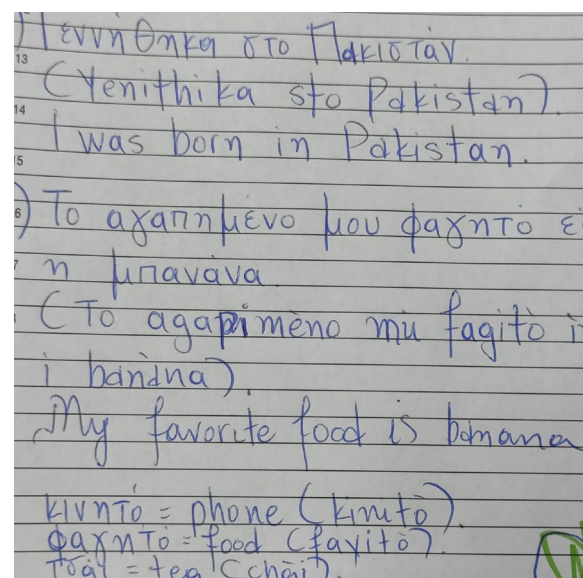 ) Γεννήθηκα στο Πακιστάν.
13
(Yenithika sto Pakistan)
14
I was born in Pakistan.
15
6) Το αγαπημένο μου φαγητό εί
7 η μπανάνα
(To agapimèno mu fagitò i
i banàna).
My favorite food is banana
κινητό = phone (kinitò).
φαγητό = food (fayitò).
τσάι = tea (chài).